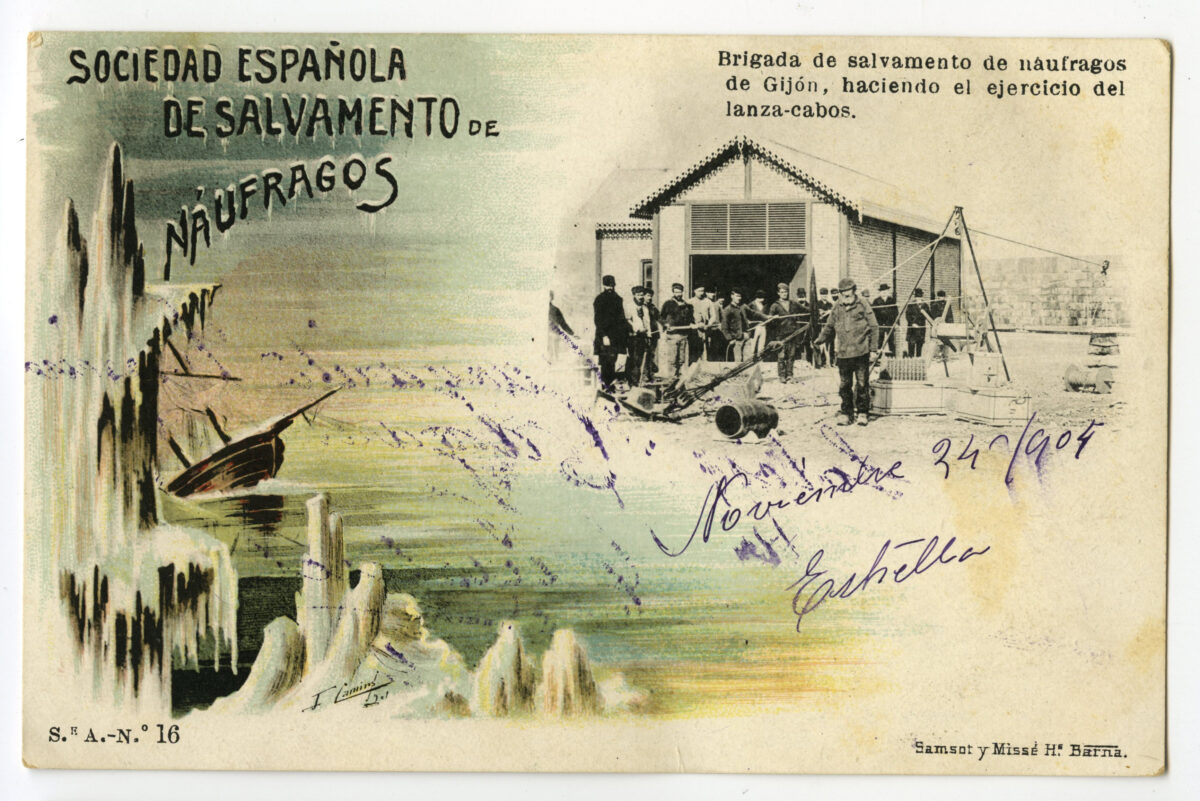 SOCIEDAD ESPAÑOLA
DE SALVAMENTO DE
NÁUFRAGOS
Brigada de salvamento de náufragos
de Gijón, haciendo el ejercicio del
lanza-cabos.
Noviembre 24 /904
Estrella
S.ᴱ A.-N.º 16
Samsot y Missé Hº Barna.